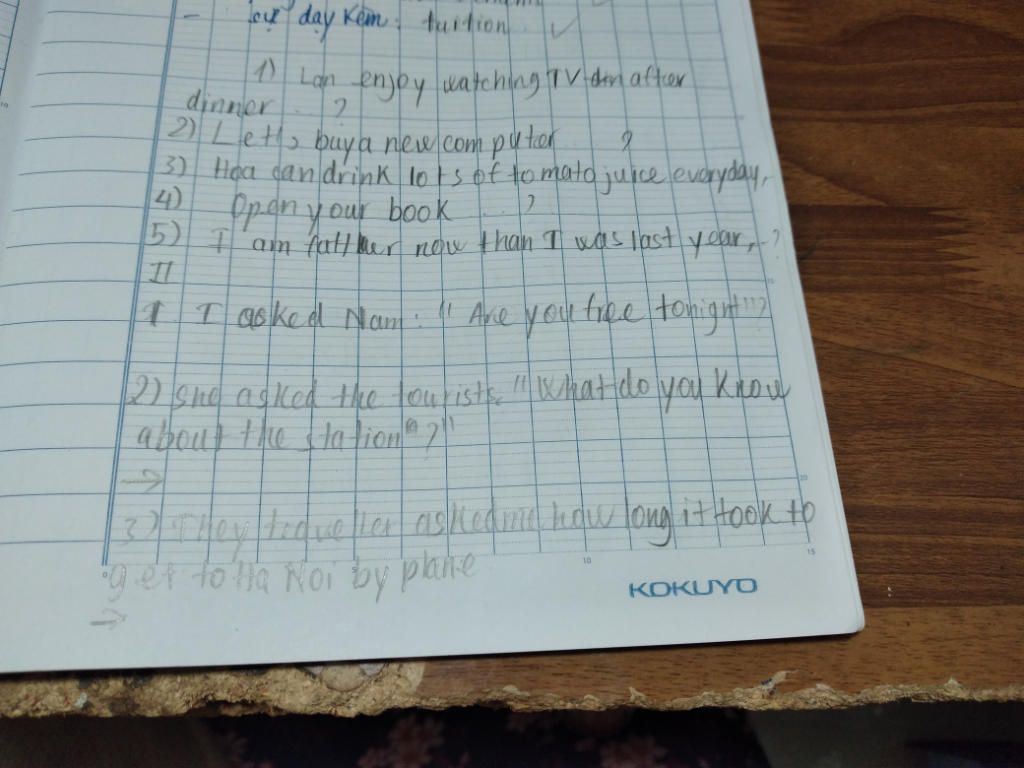 - sự dạy kèm: tuition
1) Lan enjoy watching TV after
dinner ...?
2) Let's buy a new computer ...?
3) Hoa can drink lots of tomato juice everyday,
4) Open your book ...?
5) I am fatther now than I was last year, ..?
II
1 I asked Nam: "Are you free tonight"?
2) She asked the tourists. "What do you know
about the station"?"
→
3) They traveller asked me how long it took to
get to Ha Noi by plane
→
KOKUYO
5
10
15
20